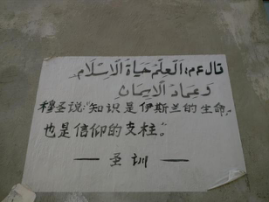 قال ع م: العلم حياة الاسلام
وعماد الايمان
穆圣说"知识是伊斯兰的生命,
也是信仰的支柱。"
— 圣训 —